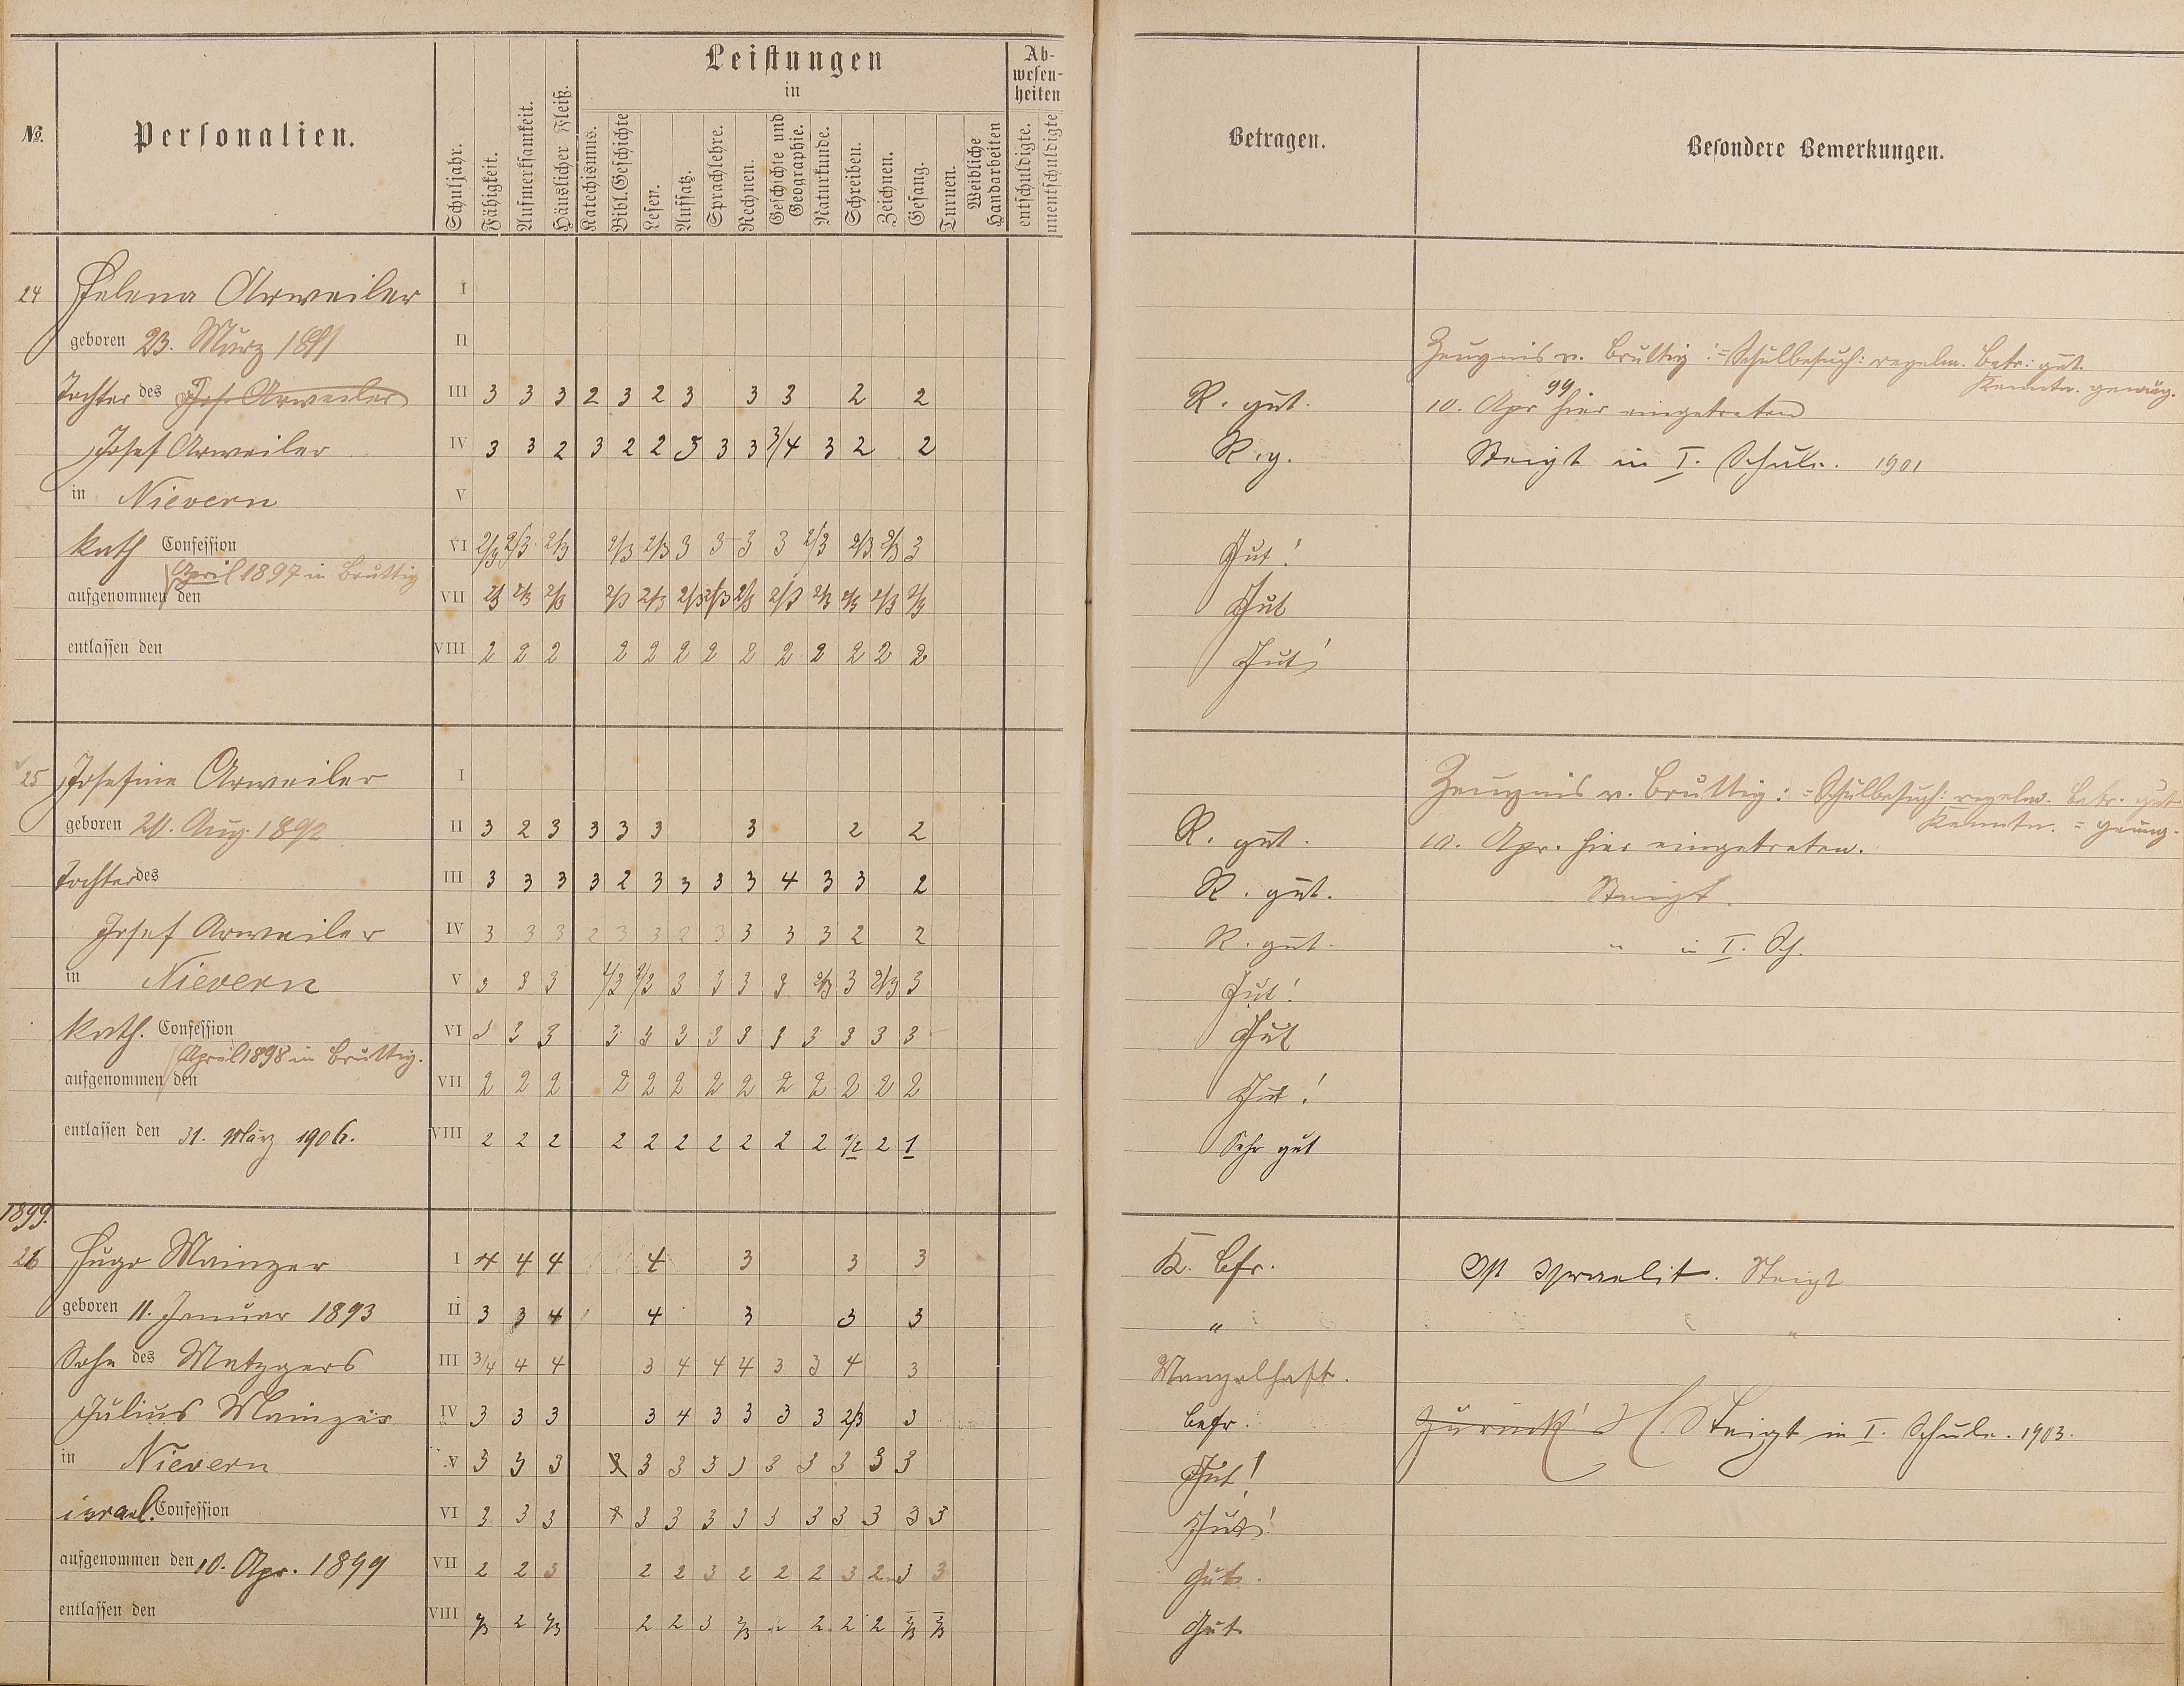 №.
Personalien.
Schuljahr.
Fähigkeit.
Aufmerksamkeit.
Häuslicher Fleiß.
Leistungen
in
Katechismus.
Bibl. Geschichte
Lesen.
Aufsatz.
Sprachlehre.
Rechnen.
Geschichte und
Geographie.
Naturkunde.
Schreiben.
Zeichnen.
Gesang.
Turnen.
Weibliche
Handarbeiten
Ab-
wesen-
heiten
entschuldigte.
unentschuldigte
Betragen.
Besondere Bemerkungen.
24 Helena Arweiler I
geboren 23. März 1891 II
Zeugnis v. Bruttig := Schulbesuch: regelm. Betr: gut.
Kenntn. genüg.
Tochter des Jos. Arweiler III 3 3 3 2 3 2 3 3 3 2 2 R. gut. 10. Apr 99 hier eingetreten
Josef Arweiler IV 3 3 2 3 2 2 3 3 3 3/4 3 2 2 R. g. Steigt in I. Schule. 1901
in Nievern V
kath Confession VI 2/3 2/3 2/3 2/3 2/3 3 3 3 3 2/3 2/3 2/3 3 Gut!
April 1897 in Bruttig
aufgenommen den VII 2/3 2/3 2/3 2/3 2/3 2/3 2/3 2/3 2/3 2/3 2/3 2/3 2/3 Gut
entlassen den VIII 2 2 2 2 2 2 2 2 2 2 2 2 2 Gut!
25 Josefine Arweiler I
Zeugnis v. Bruttig: = Schulbesuch: regelm. Betr. gut
Kenntn. = genüg.
geboren 20. Aug. 1892 II 3 2 3 3 3 3 3 2 2 R. gut. 10. Apr. hier eingetreten.
Tochter des III 3 3 3 3 2 3 3 3 3 4 3 3 2 R. gut. Steigt.
Josef Arweiler IV 3 3 3 2 3 3 2 3 3 3 3 2 2 R. gut. " in I. Sch.
in Nievern V 3 3 3 2/3 2/3 3 3 3 3 2/3 3 2/3 3 Gut!
kath. Confession VI 3 3 3 3 3 3 3 3 3 3 3 3 3 Gut
April 1898 in Bruttig.
aufgenommen den VII 2 2 2 2 2 2 2 2 2 2 2 2 2 Gut!
entlassen den 31. März 1906. VIII 2 2 2 2 2 2 2 2 2 2 1/2 2 1 Sehr gut
1899.
26 Hugo Mainzer I 4 4 4 4 3 3 3 K. bfr. Ist Israelit. Steigt
geboren 11. Januar 1893 II 3 3 4 4 3 3 3 " "
Sohn des Metzgers III 3/4 4 4 3 4 4 4 3 3 4 3 Mangelhaft.
Julius Mainzer IV 3 3 3 3 4 3 3 3 3 2/3 3 befr. Zurück! Steigt in I. Schule. 1903.
in Nievern V 3 3 3 3 3 3 3 3 3 3 3 3 3 Gut!
israel. Confession VI 3 3 3 3 3 3 3 3 3 3 3 3 3 Gut!
aufgenommen den 10. Apr. 1899 VII 2 2 3 2 2 3 2 2 2 3 2 3 3 Gut.
entlassen den VIII 2/3 2 2/3 2 2 3 2/3 2 2 2 2 2/3 2/3 Gut